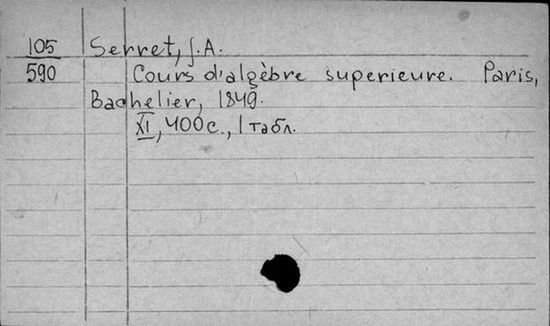 105
590
Serret, J.A.
Cours d'algèbre superieure. Paris,
Bachelier, 1849.
XI, 400 с., 1 табл.